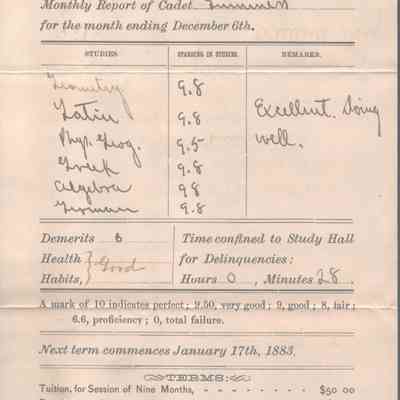 Monthly Report of Cadet
for the month ending December 6th.
STUDIES. STANDING IN STUDIES. REMARKS.
Geometry 9.8
Latin 9.8 Excellent. Doing
Phys. Geog. 9.5 well.
Greek 9.8
Algebra 9 8
German 9.8
Demerits 6 Time confined to Study Hall
Health } Good for Delinquencies:
Habits, Hours 0, Minutes 28.
A mark of 10 indicates perfect; 9.50, very good; 9, good; 8, fair;
6.6, proficiency; 0, total failure.
Next term commences January 17th, 1883.
TERMS:
Tuition, for Session of Nine Months, - - - - - - - $50 00